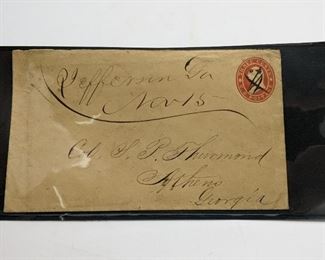 Jefferson Ga
Nov 15
Col. S. P. Thurmond
Athens
Georgia